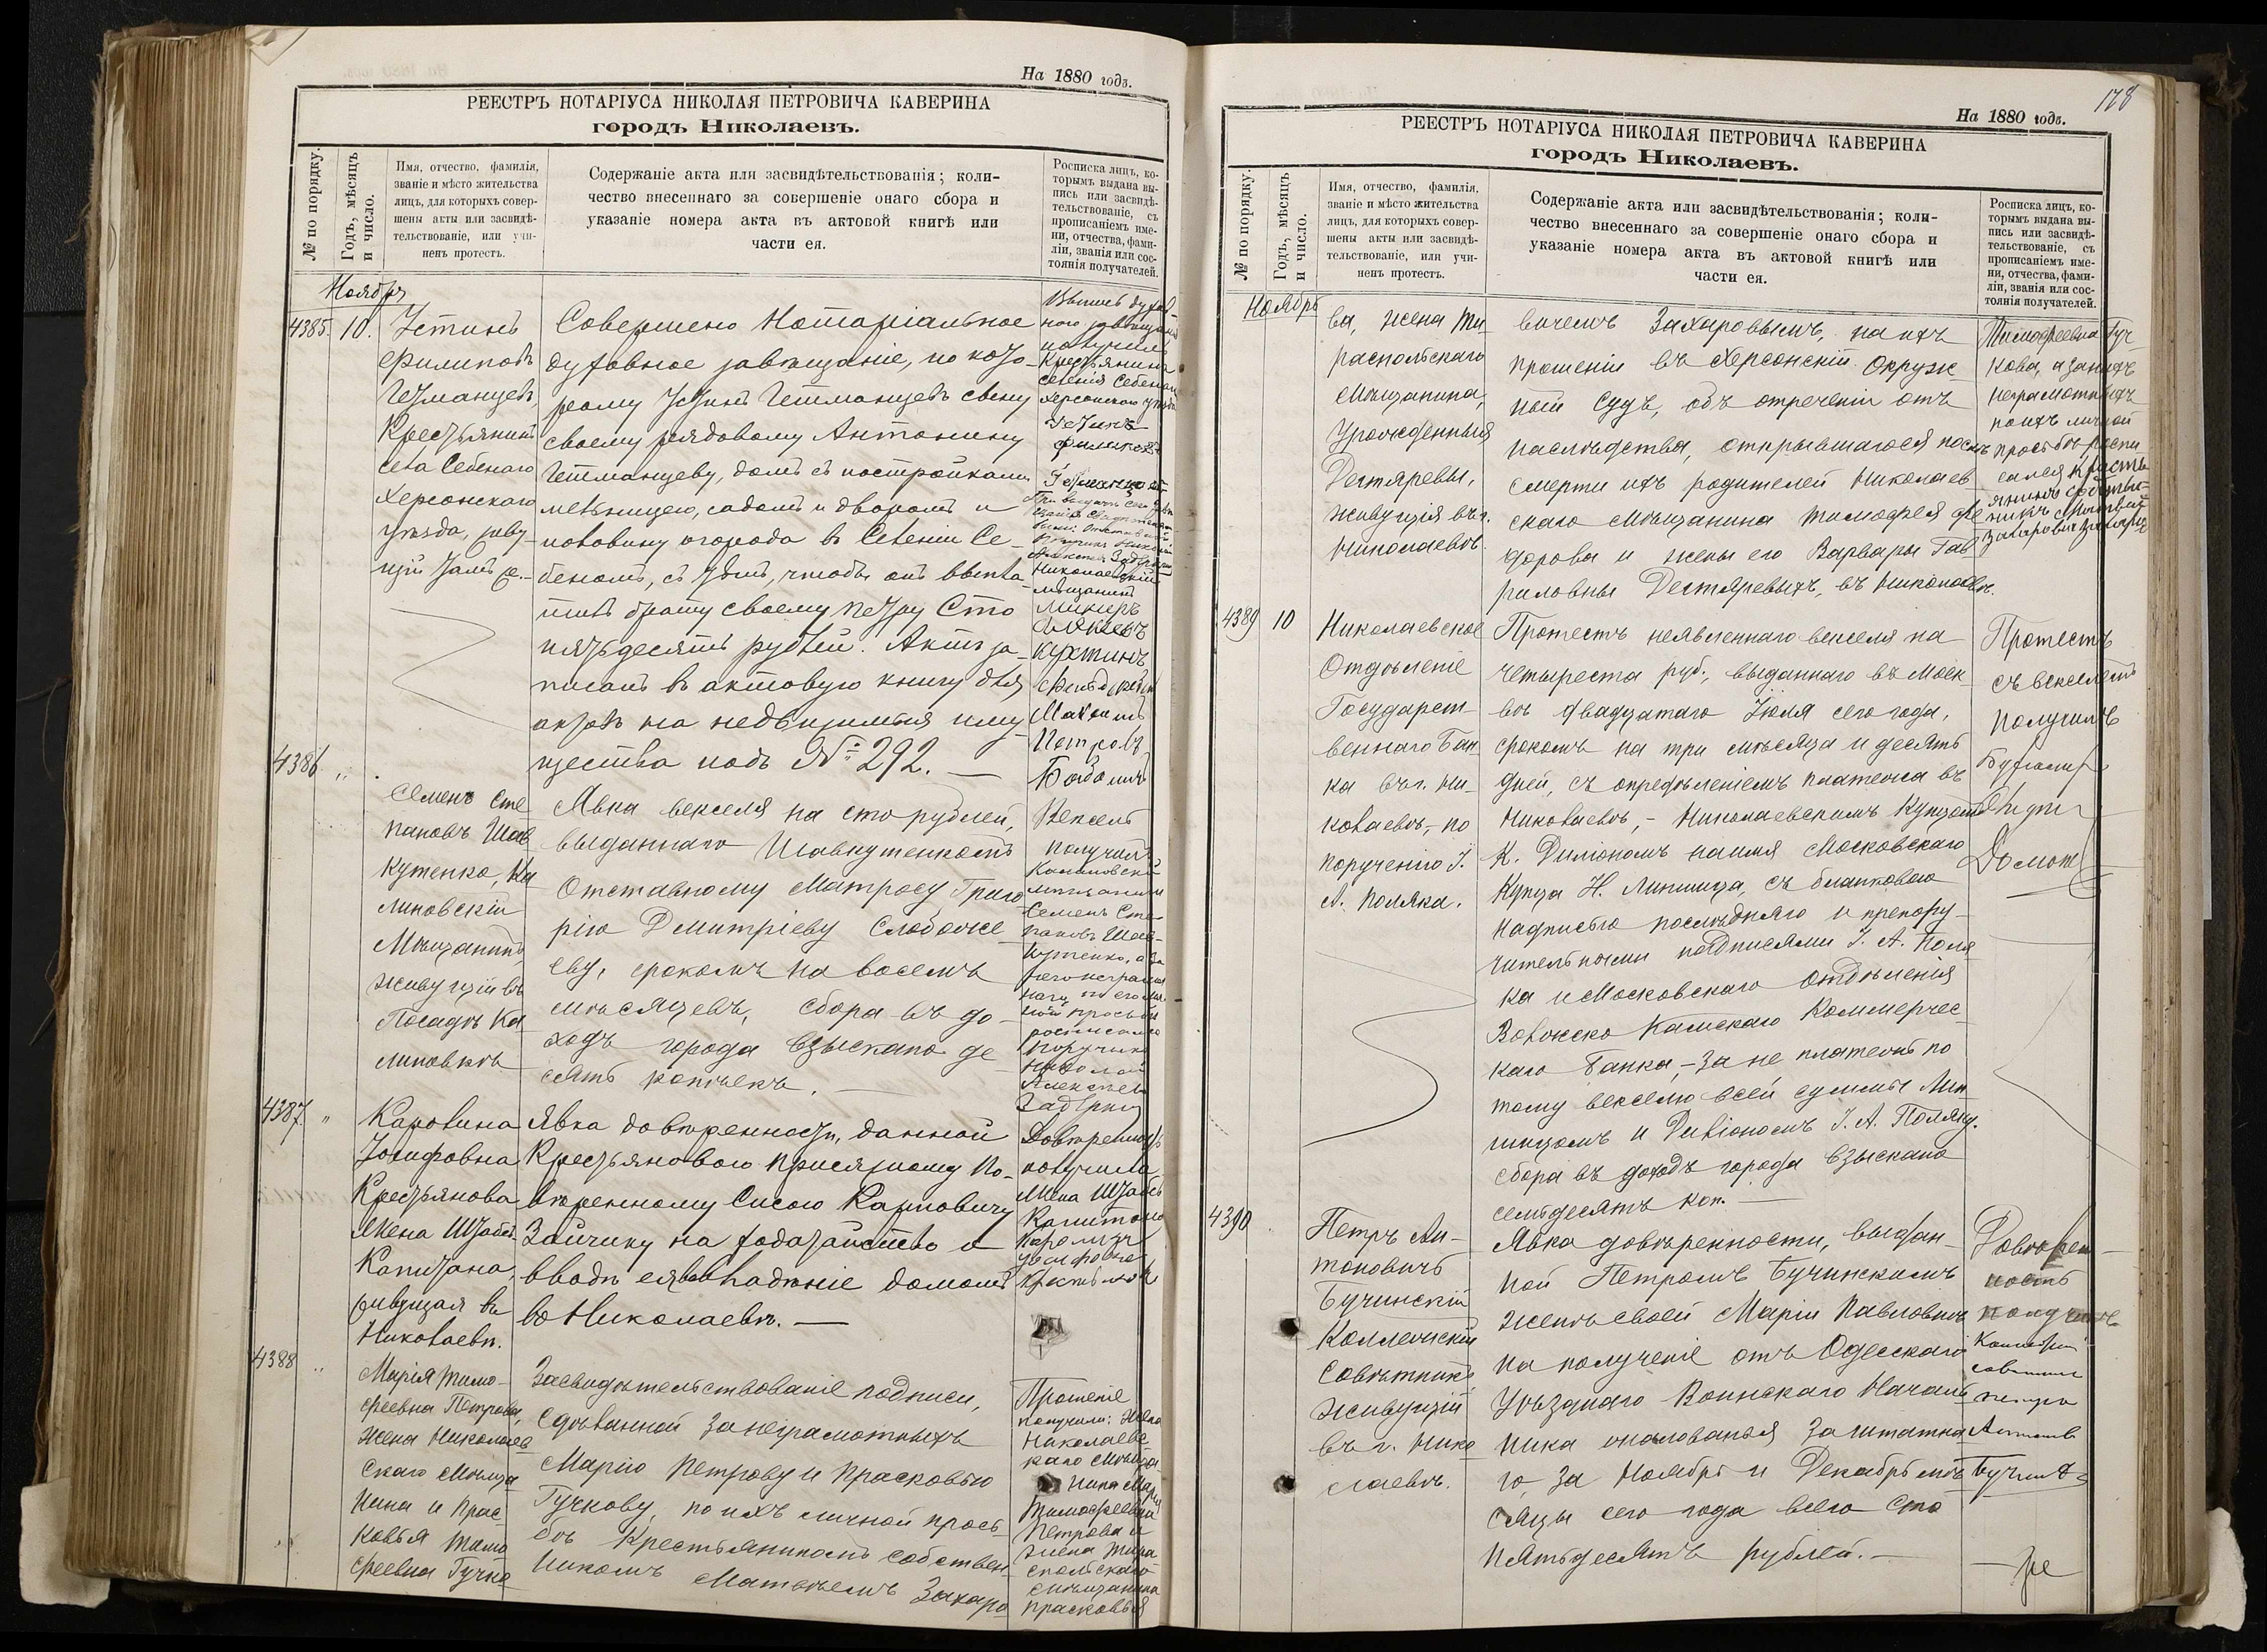 На 1880 годъ.
РЕЕСТРЪ НОТАРІУСА НИКОЛАЯ ПЕТРОВИЧА КАВЕРИНА
городъ Николаевъ.
№ по порядку.
Годъ, мѣсяцъ
и число.
Имя, отчество, фамилія,
званіе и мѣсто жительства
лицъ, для которыхъ совер-
шены акты или засвидѣ-
тельствованіе, или учи-
ненъ протестъ.
Содержаніе акта или засвидѣтельствованія; коли-
чество внесеннаго за совершеніе онаго сбора и
указаніе номера акта въ актовой книгѣ или
части ея.
Росписка лицъ, ко-
торымъ выдана вы-
пись или засвидѣ-
тельствованіе, съ
прописаніемъ име-
ни, отчества, фами-
ліи, званія или сос-
тоянія получателей.
Ноябрь
4385. 10.
Устинъ
Филиповъ
Гетманцевъ,
Крестьянинъ
села Себенаго
Херсонскаго
уѣзда, живу-
щій тамъ же.
Совершено Нотаріальное
духовное завѣщаніе, по кото-
рому Устинъ Гетманцевъ сыну
своему рядовому Антонину
Гетманцеву, домъ съ постройками
мельницею, садомъ и дворомъ и
половину огорода въ селеніи Се-
беномъ, съ тѣмъ, чтобы онъ выпла-
тилъ брату своему Петру Сто
пятьдесятъ рублей. Актъ за-
писанъ въ актовую книгу для
актовъ на недвижимыя иму-
щества подъ № 292.
Выпись духов-
наго завѣщанія
получилъ
Крестьянинъ
селенія Себенаго
Херсонскаго уѣзда
Устинъ
Филиповъ
Гетманцевъ
Николаевскій
мѣщанинъ
Петровъ
4386 "
Семенъ Сте
пановъ Шав
кутенко, Ка
линовскій
Мѣщанинъ
живущій въ
Посадѣ Ка
линовкѣ
Явка векселя на сто рублей,
выданнаго Шавкутенкомъ
Отставному Матросу Григо
рію Дмитріеву Слободче
еву, срокомъ на восемь
мѣсяцевъ, сбора въ до-
ходъ города взыскано де
сять копѣекъ.
Вексель
получилъ
Калиновскій
мѣщанинъ
Семенъ Сте
пановъ Шав-
кутенко, а за
него неграмот
наго по его лич
ной просьбѣ
росписался
Поручикъ
Николай
Алексѣевъ
4387 "
Каролина
Іосифовна
Крестьянова
жена Штабсъ-
Капитана,
живущая въ
Николаевѣ.
Явка довѣренности, данной
Крестьяновою Присяжному По-
вѣренному Сысою Карповичу
Зайчику на ходатайство о
вводѣ ея во владѣніе домомъ
въ Николаевѣ.
Довѣренность
получила
жена Штабсъ
Капитана
Каролина
Іосифовна
4388 "
Марія Тимо-
феевна Петрова,
жена Николаев
скаго Мѣща
нина и Прас
ковья Тимо
феевна Гучко
Засвидѣтельствованіе подписи,
сдѣланной за неграмотныхъ
Марію Петрову и Прасковью
Гучкову, по ихъ личной прось-
бѣ Крестьяниномъ собствен-
никомъ Матвѣемъ Захаро
Прошеніе
получили: жена
Николаевс
каго Мѣща
нина Марія
Тимофеевна
Петрова и
жена Тира-
спольскаго
мѣщанина
Прасковья
178
На 1880 годъ.
РЕЕСТРЪ НОТАРІУСА НИКОЛАЯ ПЕТРОВИЧА КАВЕРИНА
городъ Николаевъ.
№ по порядку.
Годъ, мѣсяцъ
и число.
Имя, отчество, фамилія,
званіе и мѣсто жительства
лицъ, для которыхъ совер-
шены акты или засвидѣ-
тельствованіе, или учи-
ненъ протестъ.
Содержаніе акта или засвидѣтельствованія; коли-
чество внесеннаго за совершеніе онаго сбора и
указаніе номера акта въ актовой книгѣ или
части ея.
Росписка лицъ, ко-
торымъ выдана вы-
пись или засвидѣ-
тельствованіе, съ
прописаніемъ име-
ни, отчества, фами-
ліи, званія или сос-
тоянія получателей.
Ноябрь
ва, жена Ти
распольскаго
Мѣщанина,
Урожденныя
Дегтяревы,
живущія въ г.
Николаевѣ.
вичемъ Захаровымъ, на ихъ
прошеніи въ Херсонскій Окруж-
ный Судъ, объ отреченіи отъ
наслѣдства, открывшагося послѣ
смерти ихъ родителей Николаев
скаго Мѣщанина Тимофея Фе
дорова и жены его Варвары Гав
риловны Дегтяревыхъ, въ Николаевѣ.
Тимофеевна Гуч
кова, а за нихъ
неграмотныхъ
по ихъ личной
просьбѣ роспи
сался Кресть
янинъ собствен-
никъ Матвѣй
Захаровичъ Захаровъ
4389 10
Николаевское
Отдѣленіе
Государст-
веннаго Бан-
ка въ г. Ни-
колаевѣ, - по
порученію І.
А. Поляка.
Протестъ неявленнаго векселя на
четыреста руб., выданнаго въ Моск-
вѣ двадцатаго Іюля сего года,
срокомъ на три мѣсяца и десять
дней, съ опредѣленіемъ платежа въ
Николаевѣ, - Николаевскимъ Купцомъ
К. Диліономъ на имя Московскаго
Купца Н. Липшица, съ бланковою
надписью послѣдняго и препору-
чительными надписями І. А. Поля
ка и Московскаго Отдѣленія
Волжско Камскаго Коммерчес-
каго Банка, - за не платежъ по
тому векселю всей суммы Лип
шицомъ и Диліономъ І. А. Поляку.
сбора въ доходъ города взыскано
семьдесятъ коп.
Протестъ
съ векселемъ
получилъ
4390
Петръ Ан-
тоновичъ
Бучинскій
Коллежскій
Совѣтникъ
живущій
въ г. Нико
лаевѣ.
Явка довѣренности, выдан-
ной Петромъ Бучинскимъ
женѣ своей Маріи Павловнѣ
на полученіе отъ Одесскаго
Уѣзднаго Воинскаго Началь
ника жалованья заштатна
го, за Ноябрь и Декабрь мѣ
сяцы сего года всего Сто
пятьдесятъ рублей. -
Довѣрен-
ность
получилъ
Петръ